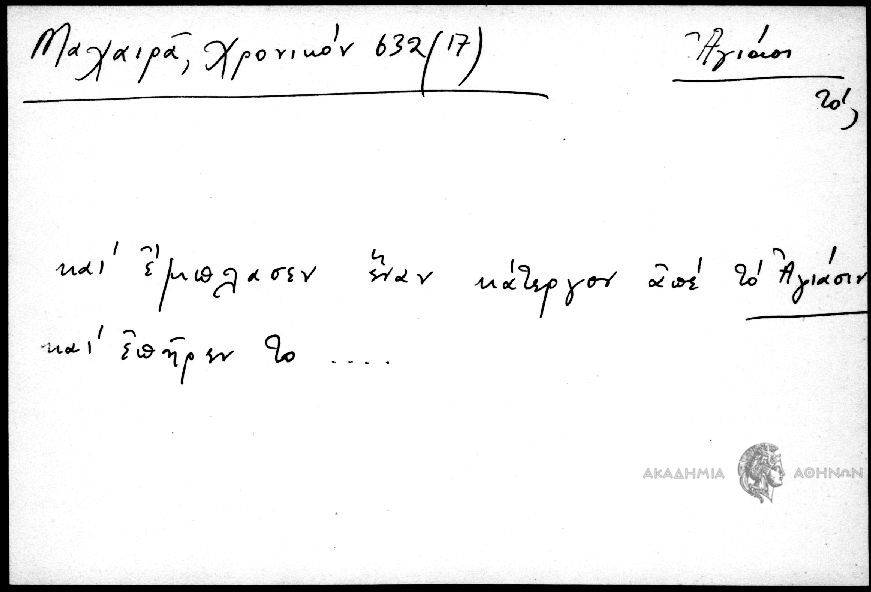 Μαχαιρᾶ, Χρονικόν 632 (17)
Ἁγιάσι
τό,
καί ἔμπλασεν ἕναν κάτεργον ἀπέ τό Ἁγιάσιν
καί ἐπῆρεν το ....
ΑΚΑΔΗΜΙΑ ΑΘΗΝΩΝ